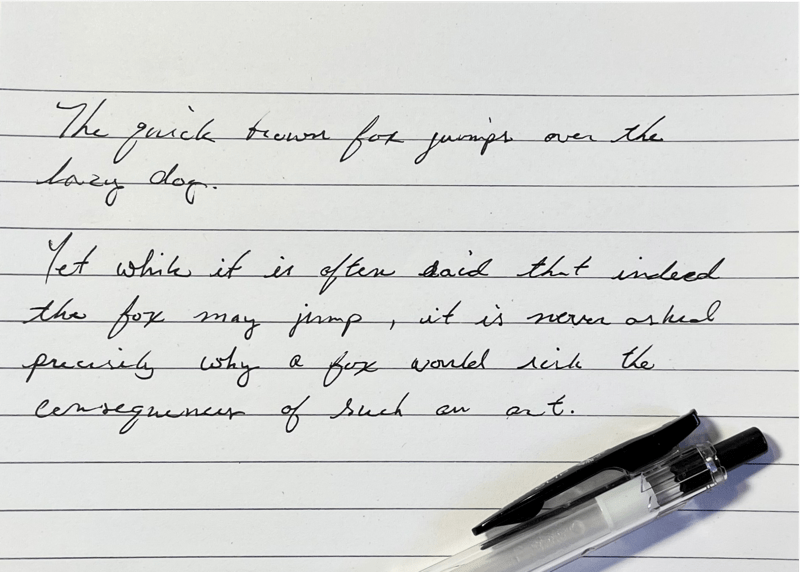 The quick brown fox jumps over the
lazy dog.
Yet while it is often said that indeed
the fox may jump, it is never asked
precisely why a fox would risk the
consequences of such an act.